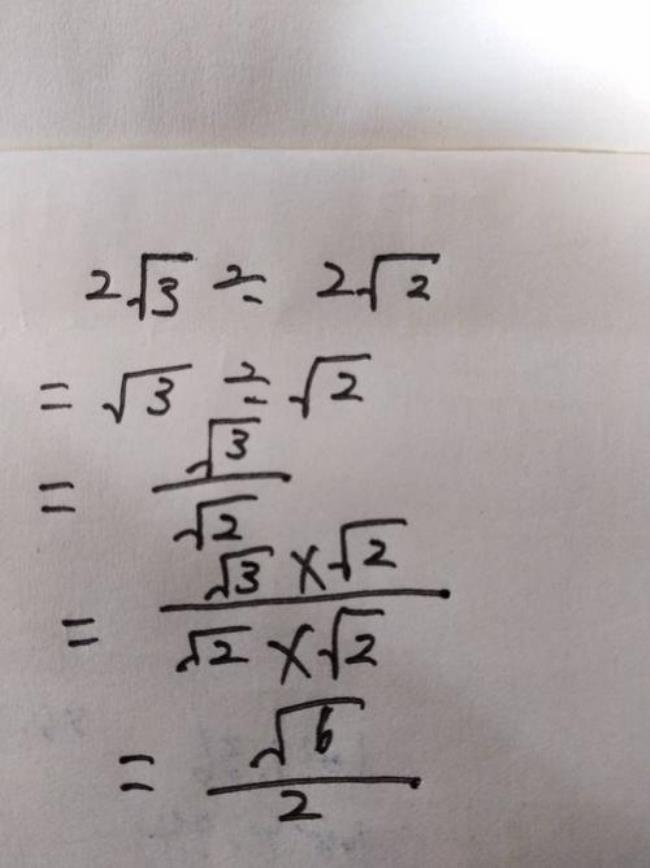 2√3 ÷ 2√2
= √3 ÷ √2
= √3/√2
= √3×√2/√2×√2
= √6/2